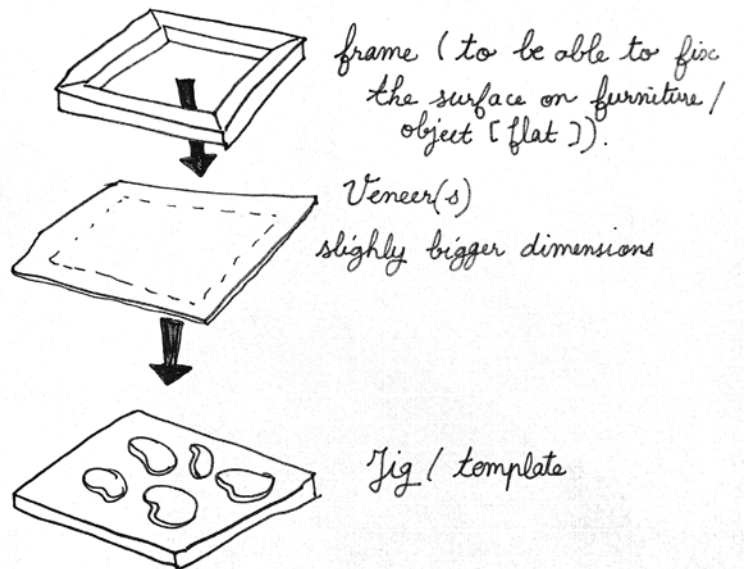 frame (to be able to fix
the surface on furniture/
object [flat]).
Veneer(s)
slighly bigger dimensions
Jig / template